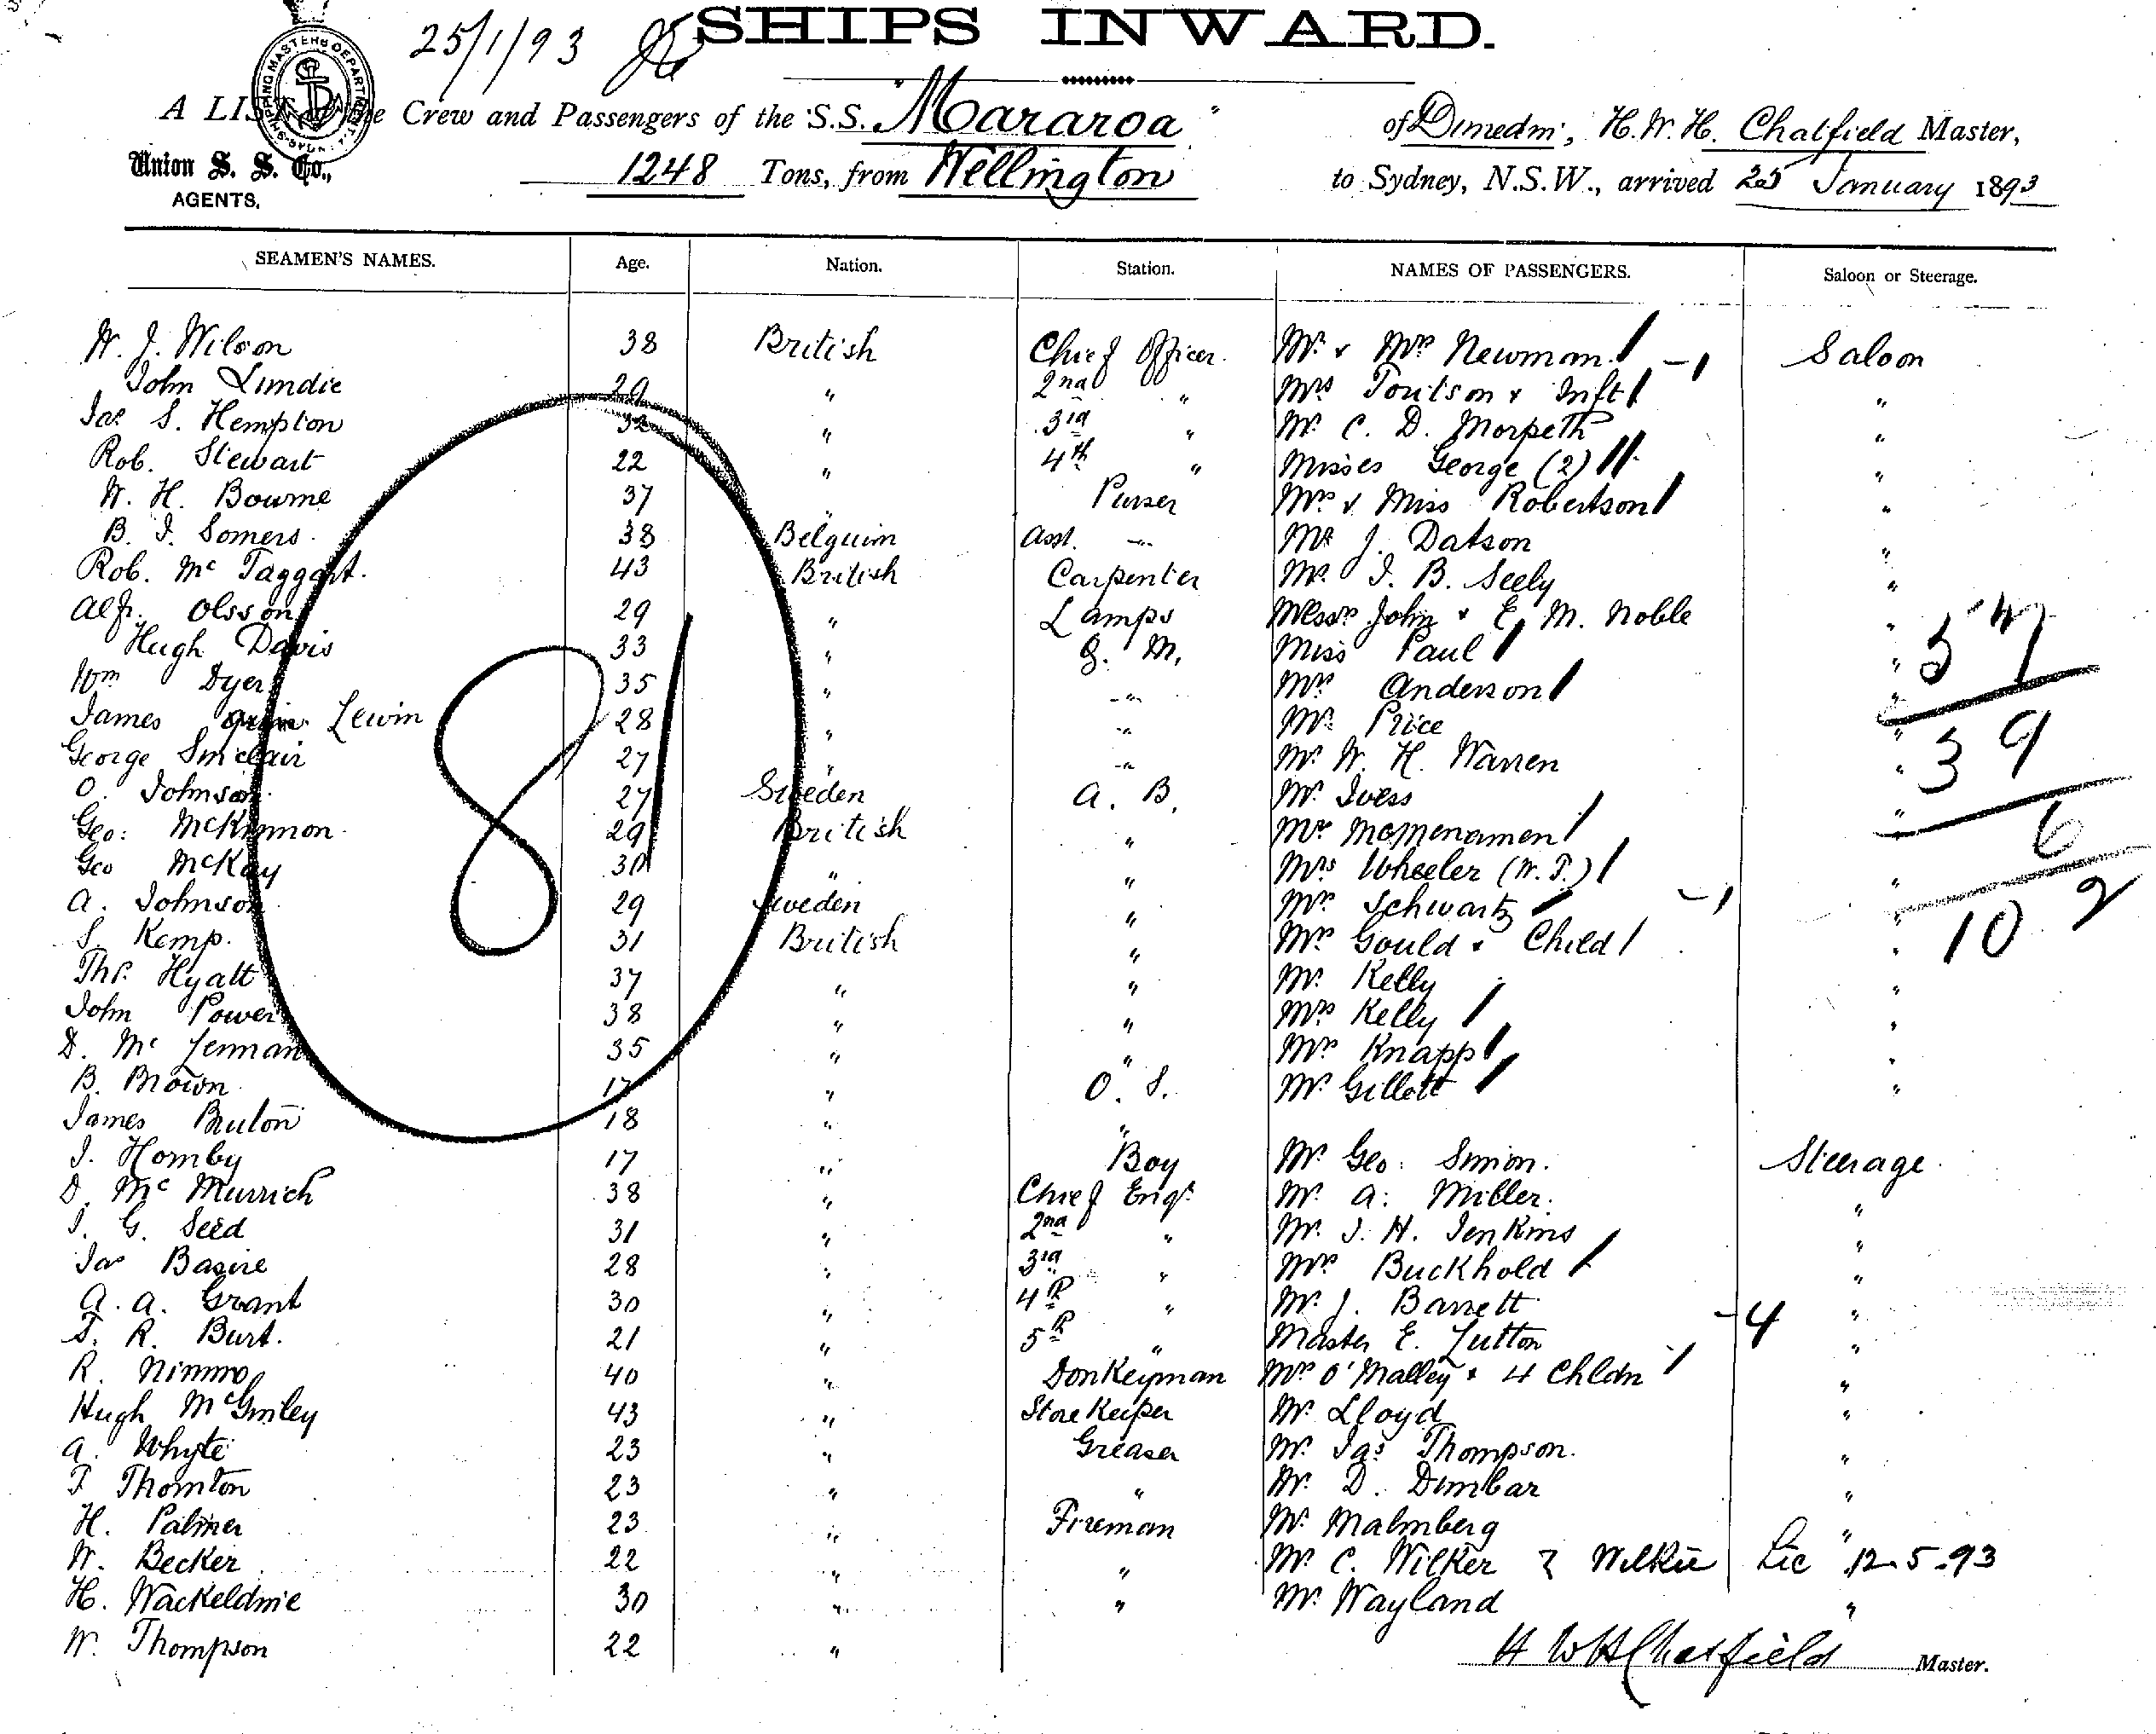 25/1/93
SHIPS INWARD.
SHIPPING MASTERS DEPARTMENT SYDNEY
A LIST of the Crew and Passengers of the S.S. "Mararoa" of Dunedin, H.W.H. Chatfield Master,
Union S. S. Co., AGENTS, 1248 Tons, from Wellington to Sydney, N.S.W., arrived 25 January 1893
SEAMEN'S NAMES. Age. Nation. Station. NAMES OF PASSENGERS. Saloon or Steerage.
W. J. Wilson 38 British Chief Officer. Mr. & Mrs Newman. -1 Saloon
John Lundie 29 " 2nd " Mrs Toulson & Inft "
Jas S. Hempton 32 " 3rd " Mr C. D. Morpeth "
Rob. Stewart 22 " 4th " Misses George (2) "
W. H. Bourne 37 " Purser Mrs & Miss Robertson "
B. J. Somers. 38 Belguim Asst. " Mr J. Datson "
Rob. Mc Taggart. 43 British Carpenter Mr. J. B. Seely "
Alfr. Olsson 29 " Lamps Messrs John & E. M. Noble "
Hugh Davis 33 " Q. M. Miss Paul "
Wm Dyer 35 " " Mrs Anderson "
James Lewin 28 " " Mr. Price "
George Sinclair 27 " " Mr. W. H. Warren "
O. Johnson. 27 Sweden A. B. Mr. Ivess "
Geo: McKinnon. 29 British " Mr McMenamen "
Geo McKay 30 " " Mrs Wheeler (W. P.) "
A. Johnson 29 Sweden " Mrs Schwartz -1 "
S. Kemp. 31 British " Mrs Gould & Child "
Thos. Hyatt 37 " " Mr. Kelly "
John Power 38 " " Mrs Kelly "
D. Mc Lennan 35 " " Mrs Knapp "
B. Brown 17 " O. S. Mr. Gillott "
James Bruton 18 " "
J. Hornby 17 " Boy Mr Geo: Simon. Steerage.
D. Mc Murrich 38 " Chief Engr Mr. A. Miller. "
J. G. Seed 31 " 2nd " Mr. J. H. Jenkins "
Jas Basire 28 " 3rd " Mrs Buckhold "
A. A. Grant 30 " 4th " Mr. J. Barrett -4 "
T. R. Burt. 21 " 5th " Master E. Lutton "
R. Nimmo 40 " Donkeyman Mrs O'Malley & 4 Chldn "
Hugh McGinley 43 " Store Keeper Mr. Lloyd "
A. Whyte 23 " Greaser Mr. Jas Thompson. "
T. Thornton 23 " " Mr. D. Dunbar "
H. Palmer 23 " Fireman Mr. Malmberg "
W. Becker 22 " " Mr. C. Wilker ? Wilkie Lic 12.5.93
H. Wackeldine 30 " " Mr. Wayland "
W. Thompson 22 "
H W H Chatfield Master.
81
57
39
6
102